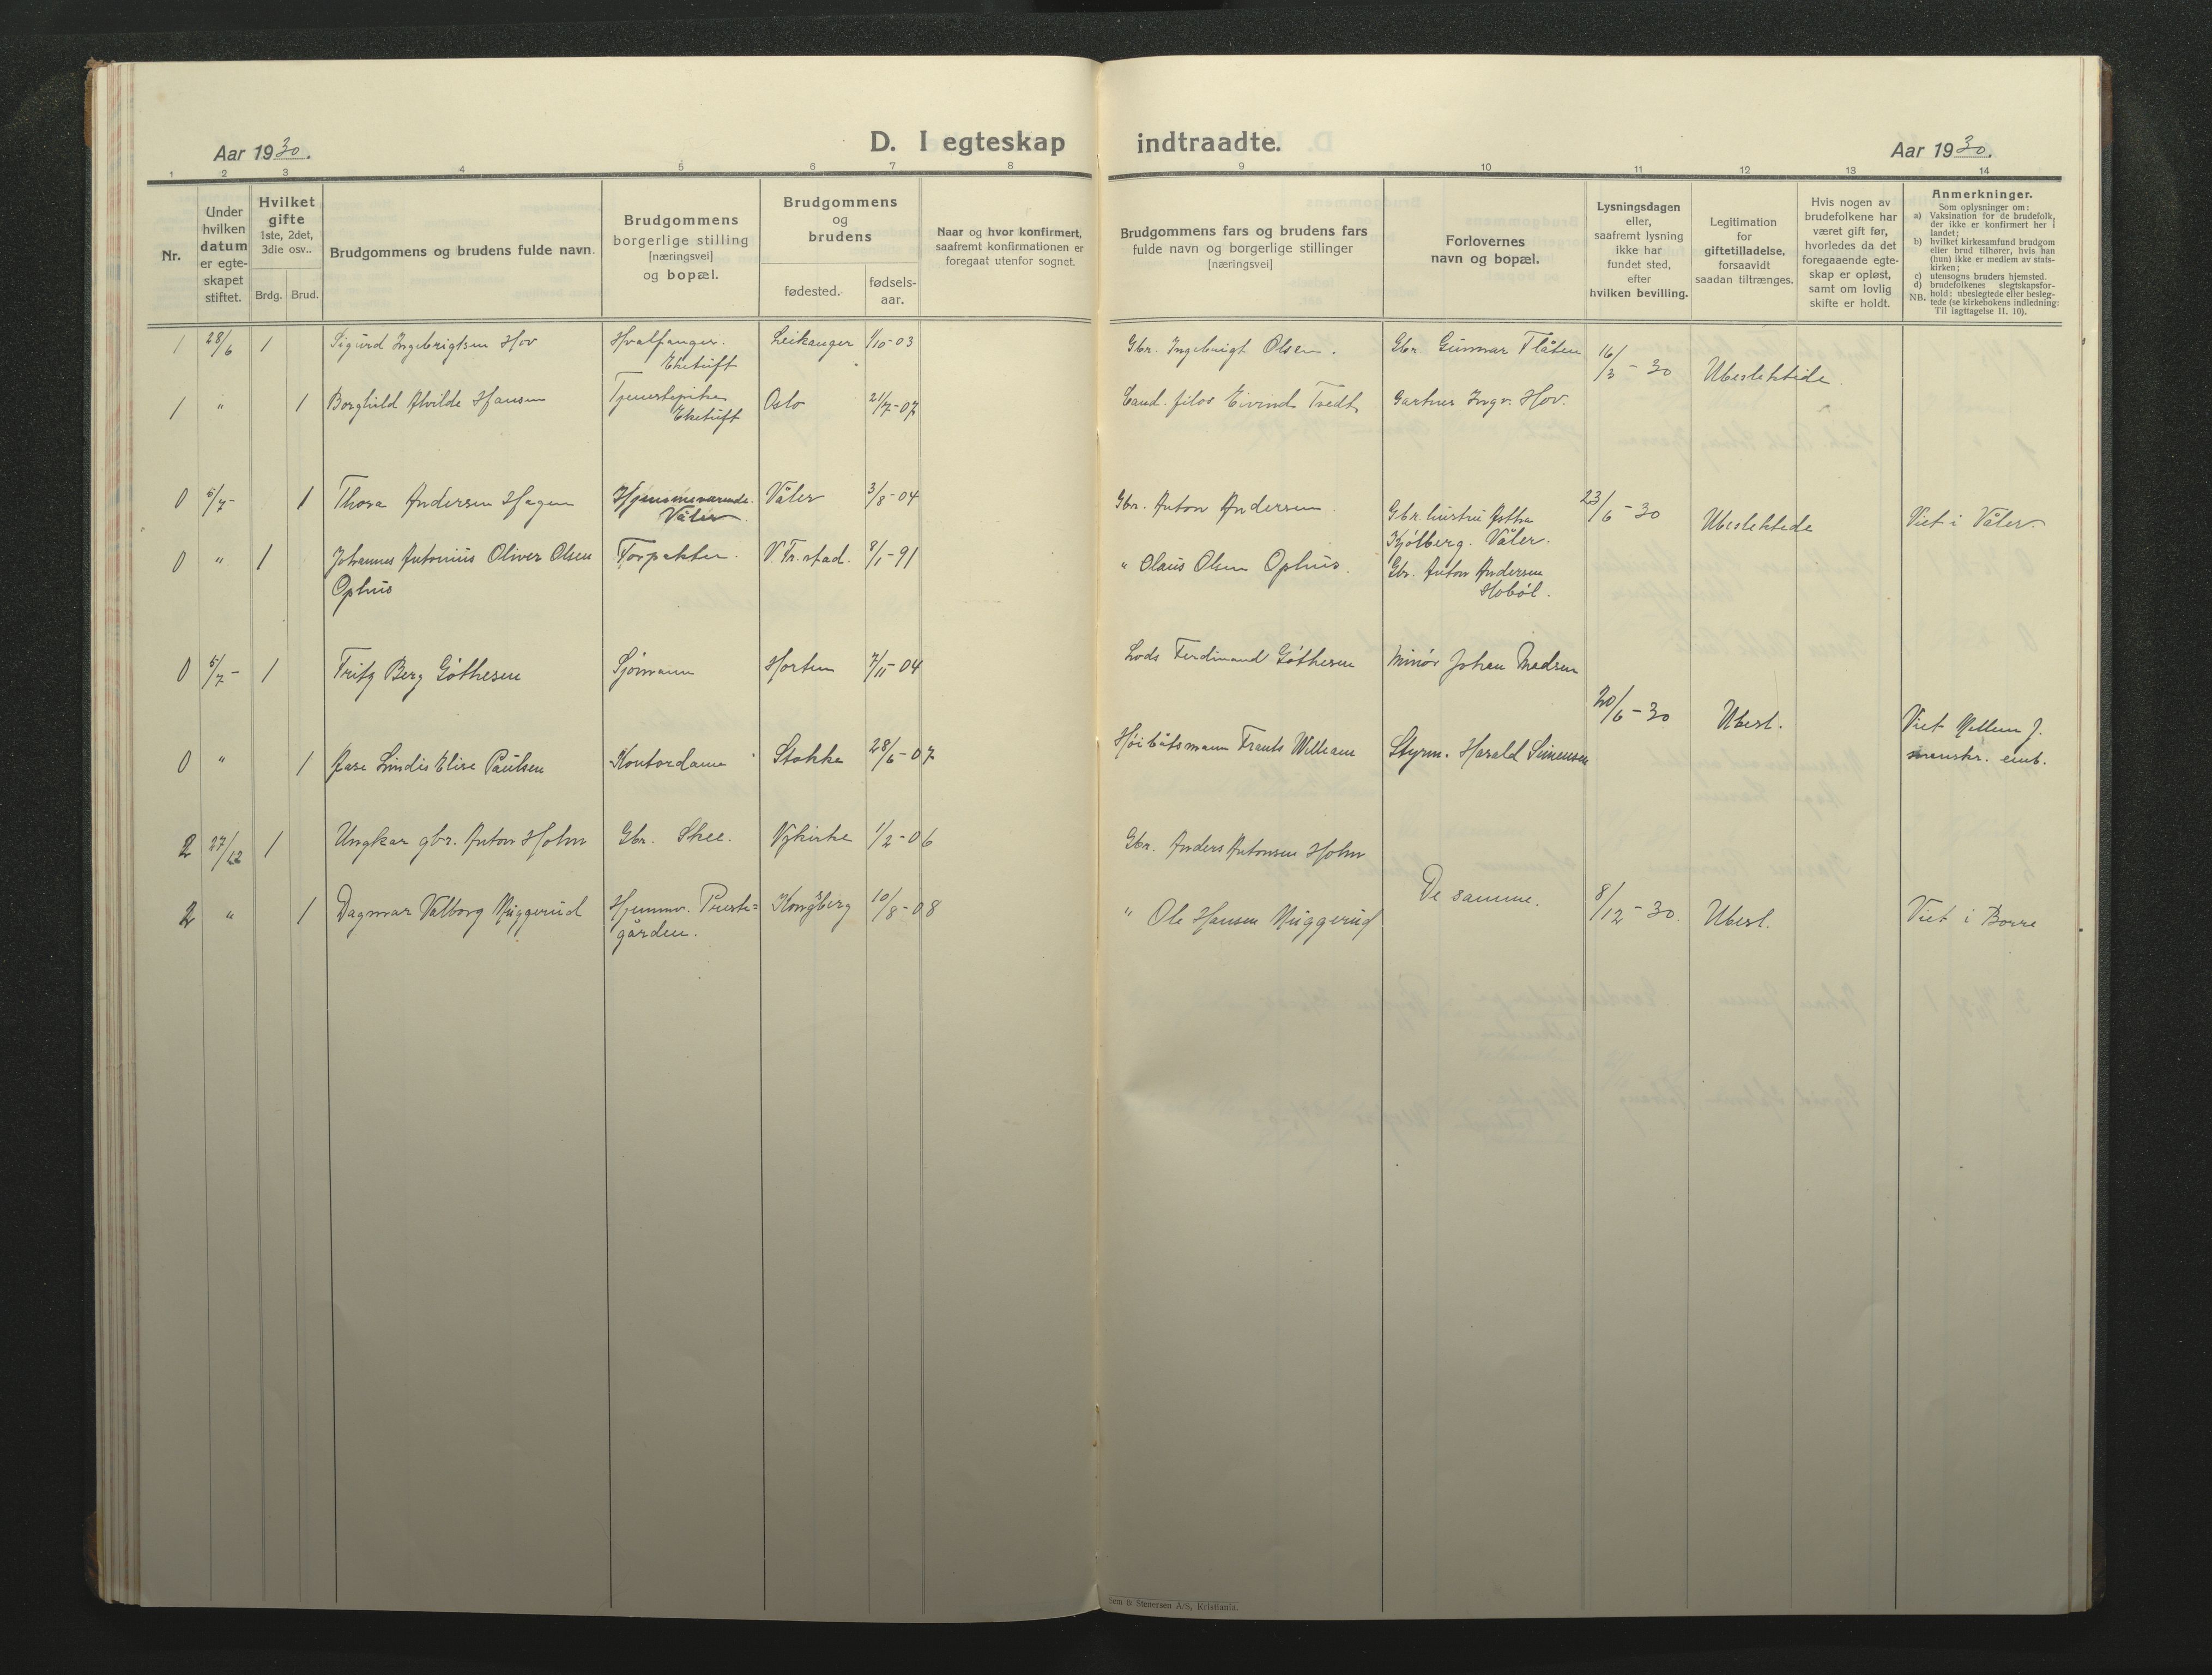 Aar 1930.
D. I egteskap indtraadte.
Aar 1930.
1 2 3 4 5 6 7 8 9 10 11 12 13 14
Nr.
Under
hvilken
datum
er egte-
skapet
stiftet.
Hvilket
gifte
1ste, 2det,
3die osv..
Brdg. Brud.
Brudgommens og brudens fulde navn.
Brudgommens
borgerlige stilling
[næringsvei]
og bopæl.
Brudgommens
og
brudens
fødested.
fødsels-
aar.
Naar og hvor konfirmert,
saafremt konfirmationen er
foregaat utenfor sognet.
Brudgommens fars og brudens fars
fulde navn og borgerlige stillinger
[næringsvei]
Forlovernes
navn og bopæl.
Lysningsdagen
eller,
saafremt lysning
ikke har
fundet sted,
efter
hvilken bevilling.
Legitimation
for
giftetilladelse,
forsaavidt
saadan tiltrænges.
Hvis nogen av
brudefolkene har
været gift før,
hvorledes da det
foregaaende egte-
skap er opløst,
samt om lovlig
skifte er holdt.
Anmerkninger.
Som oplysninger om:
a) Vaksination for de brudefolk,
der ikke er konfirmert her i
landet;
b) hvilket kirkesamfund brudgom
eller brud tilhører, hvis han
(hun) ikke er medlem av stats-
kirken;
c) utensogns bruders hjemsted.
d) brudefolkenes slegtskapsfor-
NB. hold: ubeslegtede eller besleg-
tede (se kirkebokens indledning:
Til iagttagelse II. 10).
1 28/6 1 Sigurd Ingebrigtsen Hov Hvalfanger. Leikanger 1/10-03 Gbr. Ingebrigt Olsen. Gbr. Gunnar Flåten 16/3-30 Ubeslektede
Eketuft
1 " 1 Borghild Alvilde Hansen Tjenestepike Oslo 21/7-07 Cand. filos Eivind Tredt Gartner Ingv. Hov.
Eketuft
0 5/7- 1 Thora Andersen Hagen Hjemmeværende. Våler 3/8-04 Gbr. Anton Andersen. Gbr. hustru 23/6-30 Ubeslektede Viet i Våler.
Våler. Kjølberg. Våler.
0 " 1 Johannes Antonius Oliver Olsen Forpakter. V. Fr.stad. 8/1-91 " Olaus Olsen Ophus. Gbr. Anton Andersen
Ophus Hobøl.
0 5/7- 1 Fritz Berg Göthesen Sjømann Horten 7/11-04 Lods Ferdinand Göthesen Minör Johan Madsen
20/6-30 Ubesl. Viet Mellem J.
0 " 1 Aase Lindis Elise Paulsen Kontordame Stokke 28/6-07 Høibåtsmann Frants William Styrm. Harald Simensen emb.
2 27/12 1 Ungkar gbr. Anton Holm Gbr. Skee. Nykirke 1/2-06 Gbr. Anders Antonsen Holm
De samme. 8/12-30. Ubesl. Viet i Borre
2 " 1 Dagmar Valborg Muggerud Hjemmv. Preste= Kongsberg 10/8-08 " Ole Hansen Muggerud
gården.
Sem & Stenersen A/S, Kristiania.